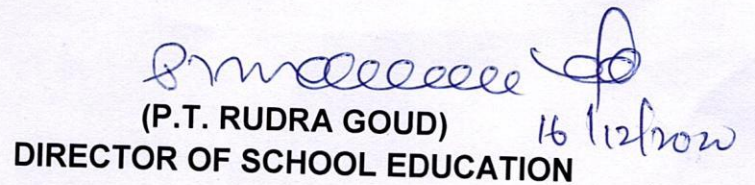 (P.T. RUDRA GOUD)
16/12/2020
DIRECTOR OF SCHOOL EDUCATION